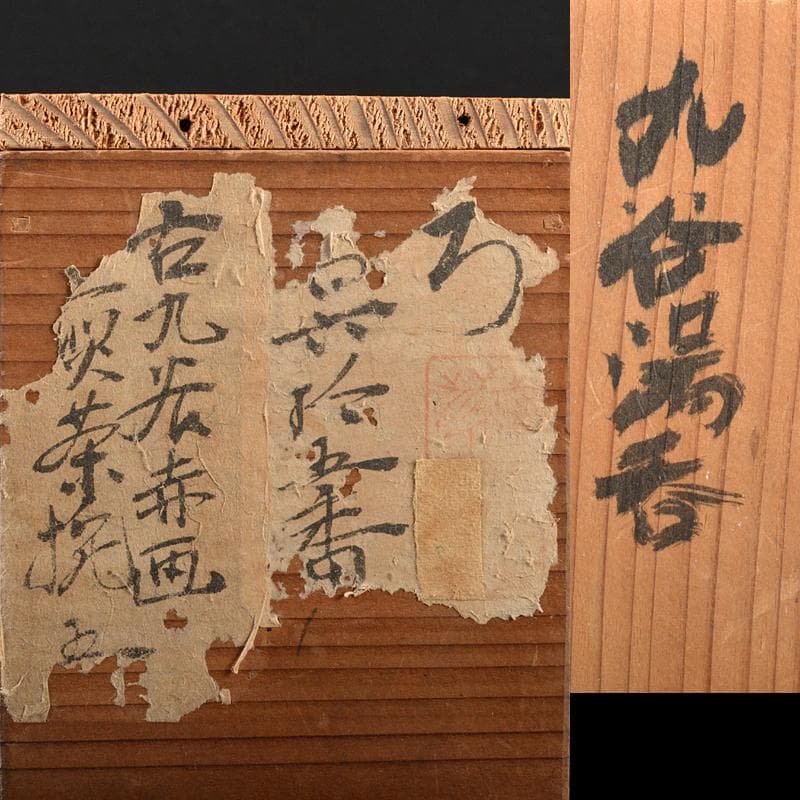 ろ
呉拾五番
古九谷赤画
煎茶椀
五
九谷湯呑